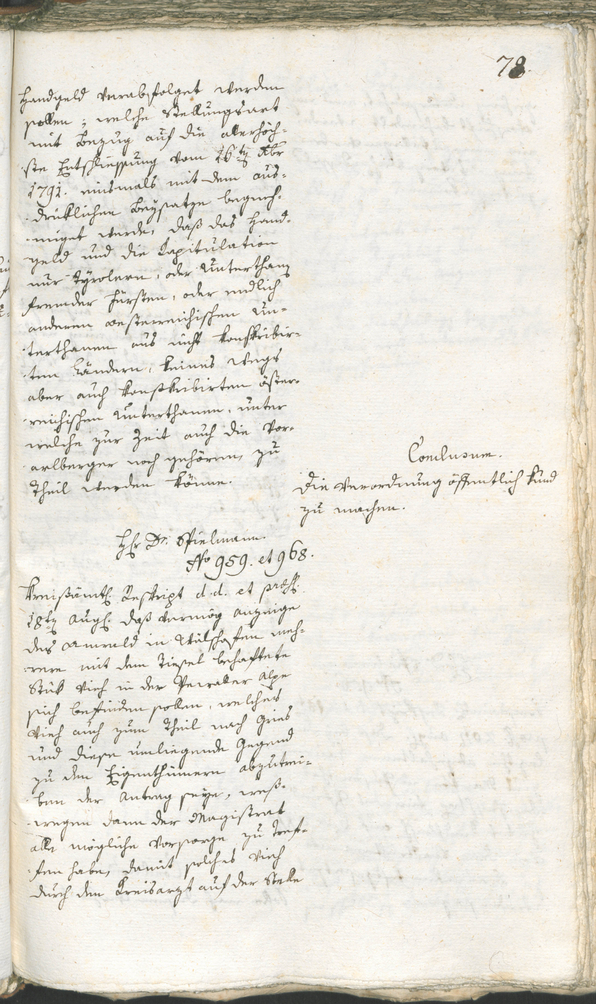 78.
Handgeld verabfolget werden
sollen; welche Stellungsart
mit Bezug auf die allerhöch-
ste Entschliessung vom 16ten 8br
1791. nurmals mit dem aus-
drüklichen Beysatze begneh-
miget werde, daß das Hand-
geld und die Capitulation
nur Tyrolern, oder Unterthans
fremder Fürsten, oder endlich
anderen oesterreichischen Un-
terthanen aus nicht konskribir-
ten Ländern, keines wegs
aber auch konskribirten öster-
reichischen Unterthanen, unter
welche zur Zeit auch die Vor-
arlberger noch gehören, zu
Theil werden könne.
Conclusum.
Die Verordnung öffentlich kund
zu machen.
Hr Dr. Spielmann.
No 959. et 968.
Kreißämtl. Reskript d. d. et präs.
18ten Augs. daß vermög Anzeige
des Anwald in meh-
rere mit dem behaftete
Stük Vieh in der Alpe
sich befinden sollen, welches
Vieh auch zum Theil nach Gries
und diese umliegende Gegend
zu den Eigenthümern abzutrei-
ben der Antrag seye, weß-
wegen dann der Magistrat
alle mögliche Vorsorge zu tref-
fen habe, damit solches Vieh
durch den Kreisarzt auf der Stelle